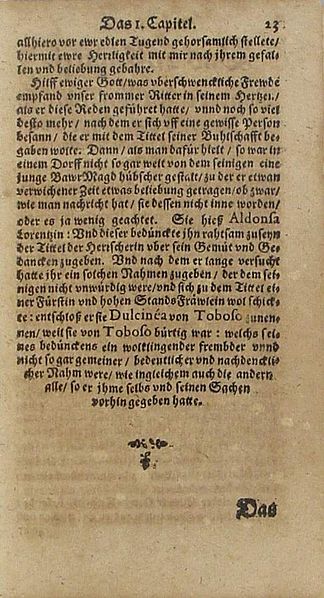 Das 1. Capitel. 23
allhiero vor ewr edlen Tugend gehorsamlich stellete/
hiermit ewre Herrligkeit mit mir nach jhrem gefal
len vnd beliebung gebahre.
Hilff ewiger Gott/ was vberschwenckliche Frewde
empfand vnser frommer Ritter in seinem Hertzen/
als er diese Reden geführet hatte/ vnnd noch so viel
desto mehr/ nach dem er sich vff eine gewisse Person
besann/ die er mit dem Tittel seiner Buhlschafft be
gaben wolte. Dann/ als man dafür hielt/ so war in
einem Dorff nicht so gar weit von dem seinigen eine
junge BawrMagd hübscher gestalt/ zu der er etwan
verwichener Zeit etwas beliebung getragen/ ob zwar/
wie man nachricht hat/ sie dessen nicht inne worden/
oder es ja wenig geachtet. Sie hieß Aldonsa
Lorentzin: Vnd dieser bedünckte jhn rahtsam zuseyn
der Tittel der Herrscherin vber sein Gemüt vnd Ge
dancken zugeben. Vnd nach dem er lange versucht
hatte jhr ein solchen Nahmen zugeben/ der dem sei
nigen nicht vnwürdig were/ vnd sich zu dem Tittel ei
ner Fürstin vnd hohen StandsFräwlein wol schick
te: entschloß er sie Dulcinéa von Toboso zunen
nen/ weil sie von Toboso bürtig war: welchs sei
nes bedünckens ein wolklingender frembder vnnd
nicht so gar gemeiner/ bedeutlicher vnd nachdenckli
cher Nahm were/ wie ingleichem auch die andern
alle/ so er jhme selbs vnd seinen Sachen
vorhin gegeben hatte.
Das